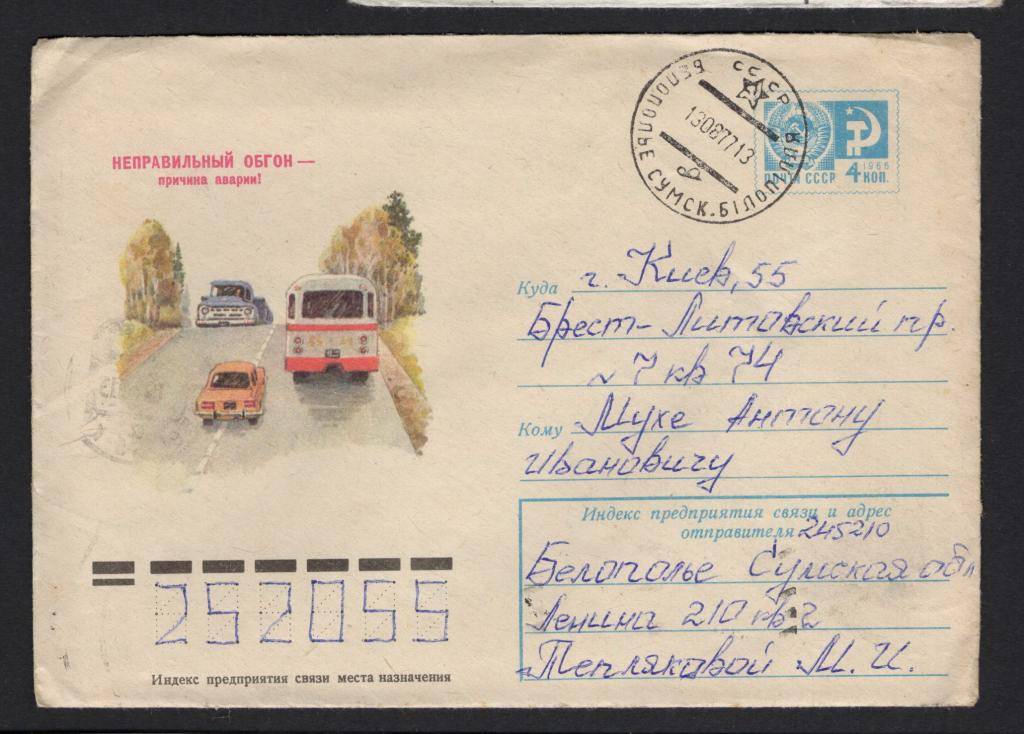 НЕПРАВИЛЬНЫЙ ОБГОН —
причина аварии!
СССР
БЕЛОПОЛЬЕ СУМСК. БІЛОПІЛЛЯ
130877 13
В
ПОЧТА СССР
1966
4 КОП.
Куда г. Киев, 55
Брест-Литовский пр.
7 кв 74
Кому Мухе Антону
Ивановичу
Индекс предприятия связи и адрес
отправителя 245210
Белополье Сумская обл
Ленина 210 кв 2
Тепляковой М. И.
252055
Индекс предприятия связи места назначения